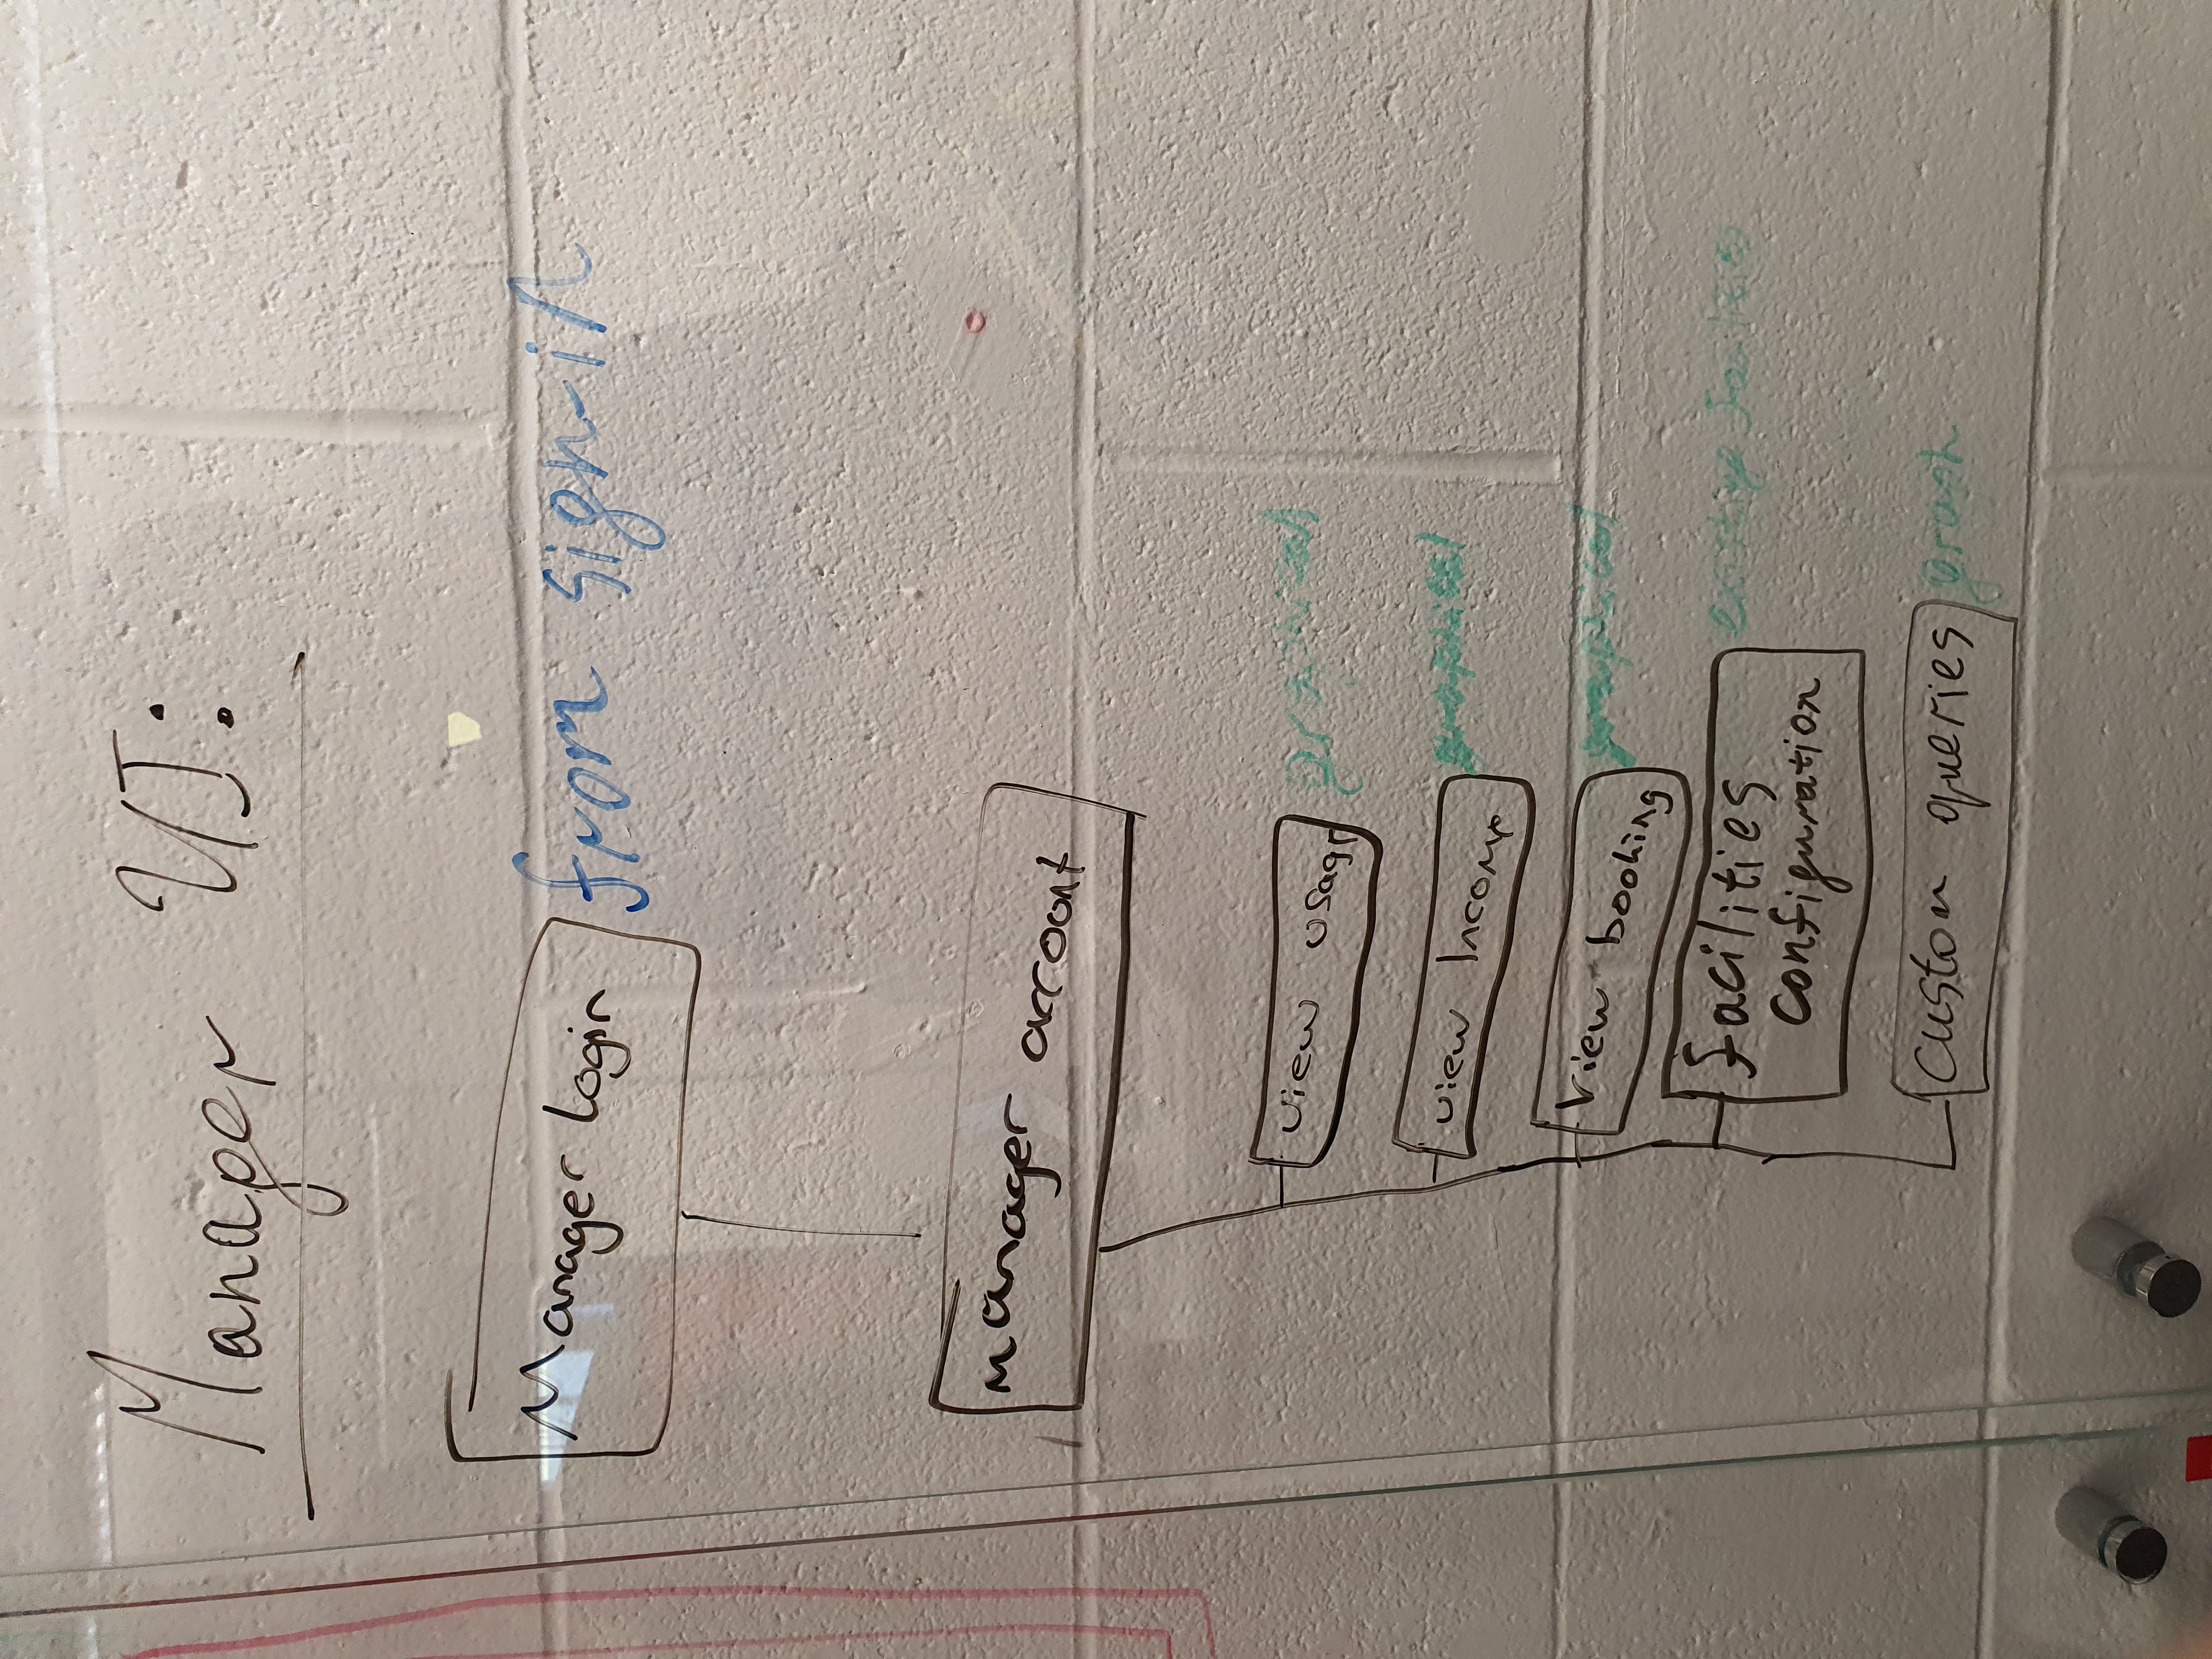 Manager UI:
Manager login from sign-in
Manager account
view usage graphical
view Income graphical
View booking graphical
facilities existing facilities
configuration
custom queries graph